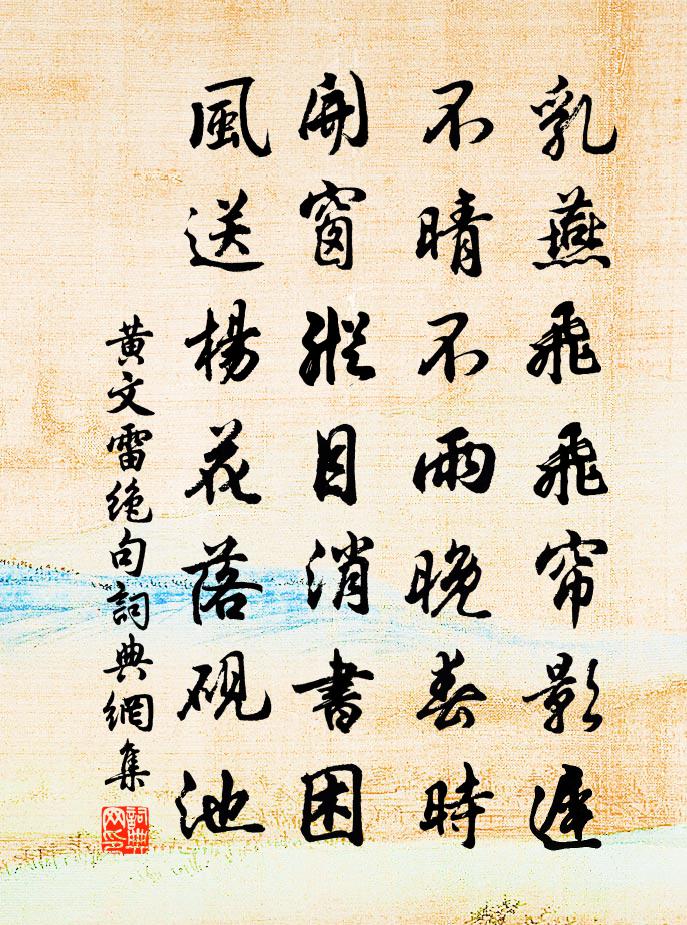 乳燕飛飛帘影遲
不晴不雨晚春時
開窗縱目消書困
風送楊花落硯池
黃文雷絕句詞典網集
詞典網印